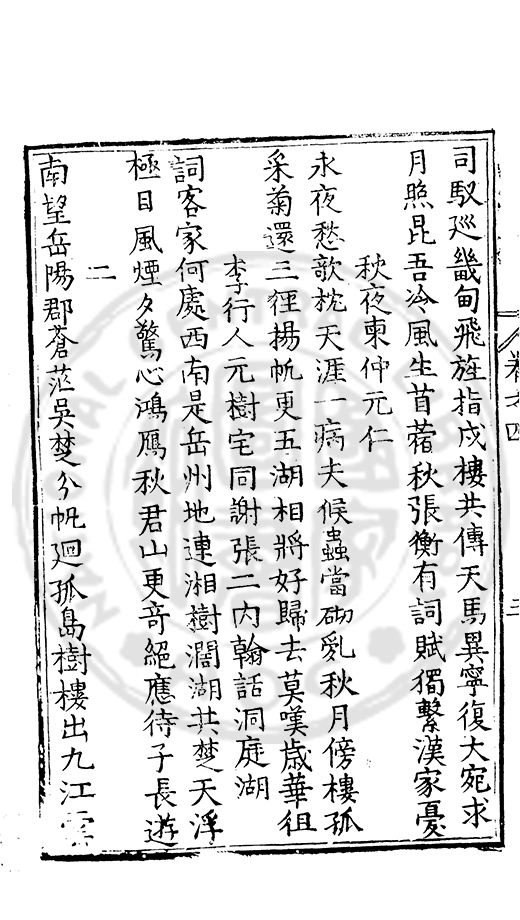 卷之四
三
司馭廵畿甸飛旌指戍樓共傳天馬異寧復大宛求
月照昆吾冷風生苜蓿秋張衡有詞賦獨繫漢家憂
秋夜柬仲元仁
永夜愁歌枕天涯一病夫候蟲當砌亂秋月傍樓孤
采菊還三徑揚帆更五湖相將好歸去莫嘆歲華徂
李行人元樹宅同謝張二内翰話洞庭湖
詞客家何處西南是岳州地連湘樹濶湖共楚天浮
極目風煙夕驚心鴻鴈秋君山更竒絕應待子長遊
二
南望岳陽郡蒼茫吳楚分帆廻孤島樹樓出九江雲